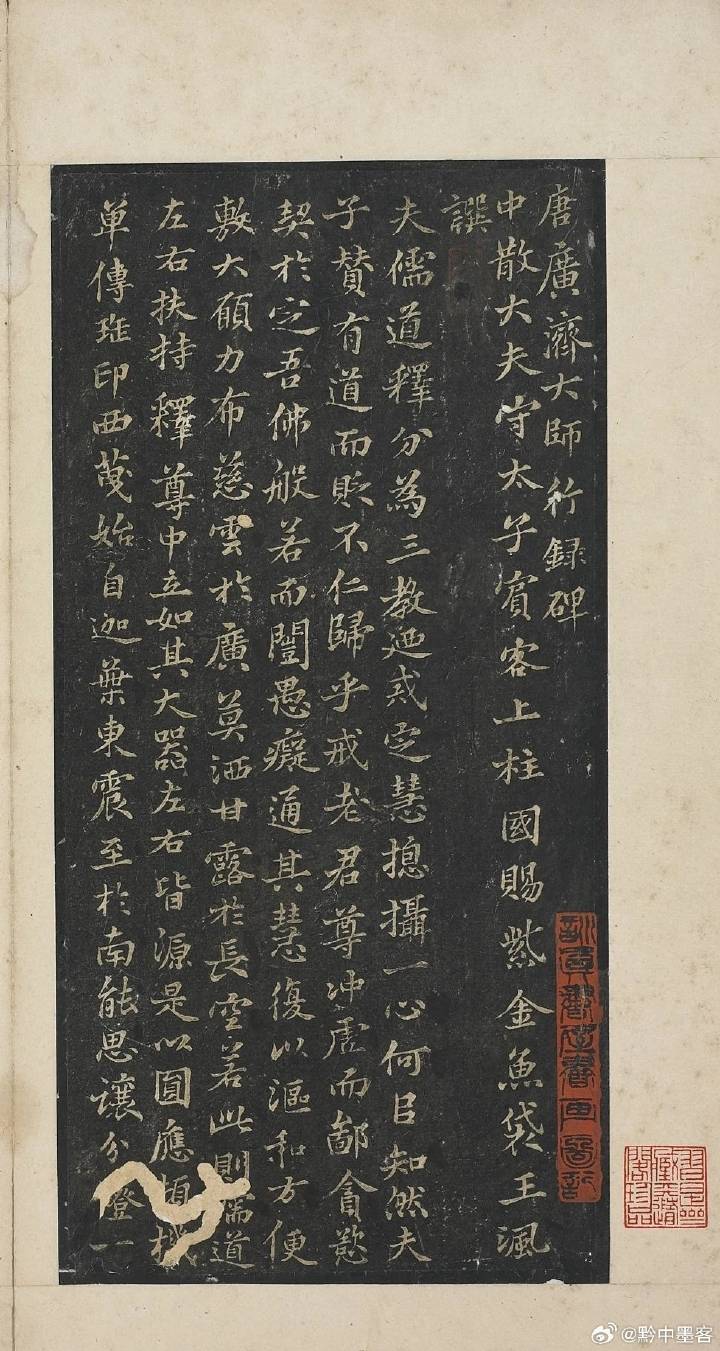 唐廣濟大師行録碑
中散大夫守太子賓客上柱國賜紫金魚袋王諷
譔
夫儒道釋分為三教迊戎定慧揔攝一心何㠯知然夫
子賛有道而貶不仁歸乎戒老君尊冲虛而鄙貪慾
契於定吾佛般若而闓愚癡通其慧復以漚和方便
敷大願力布慈雲於廣莫洒甘露於長空若此則儒道
左右扶持釋尊中立如其大器左右皆源是以圓應頓機
單傳琟印西蔑始自迦葉東震至於南能思讓分燈一
@黔中墨客